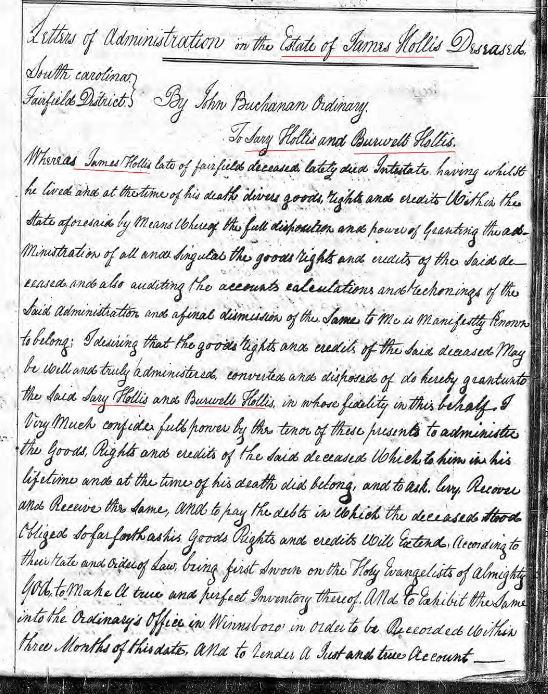 Letters of Administration on the Estate of James Hollis Deseased
South carolina
Fairfield District } By John Buchanan Ordinary.
To Sary Hollis and Burwell Hollis.
Whereas James Hollis late of fairfield deceased lately died Intestate having whilst
he lived and at the time of his death divers goods, rights and credits Within the
State aforesaid by Means Whereof the full disposition and power of Granting the ad-
Ministration of all and Singular the goods rights and credits of the Said de-
ceased and also auditing the accounts calculations and reckonings of the
Said administration and a final dismission of the Same to Me is Manifestly Known
to belong; I desiring that the goods rights and credits of the Said deceased May
be well and truly administered, converted and disposed of do hereby grant unto
the Said Sary Hollis and Burwell Hollis, in whose fidelity in this behalf, I
Very Much confide full power by the tenor of these presents to administer
the Goods, Rights and credits of the Said deceased Which to him in his
lifetime and at the time of his death did belong, and to ask, levy, Recover
and Receive the Same, and to pay the debts in Which the deceased stood
Obliged so far forth as his Goods Rights and credits Will Extend, According to
their rate and Order of Law, being first Sworn on the Holy Evangelists of Almighty
God, to Make A true and perfect Inventory thereof, And to Exhibit the Same
into the Ordinary's Office in Winnsboro in order to be Recorded Within
three Months of this date, And to render A Just and true Account —